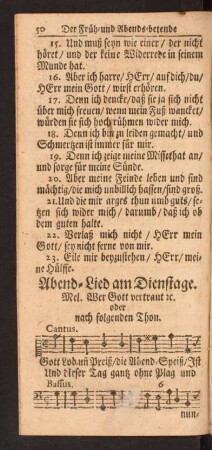 50 Der Früh- und Abends-betende
15. Und muß seyn wie einer / der nicht
höret / und der keine Widerrede in seinem
Munde hat.
16. Aber ich harre / HErr / auf dich / du /
HErr mein Gott / wirst erhören.
17. Denn ich dencke / daß sie ja sich nicht
über mich freuen / wenn mein Fuß wancket /
würden sie sich hoch rühmen wider mich.
18. Denn ich bin zu leiden gemacht / und
Schmertzen ist immer für mir.
19. Denn ich zeige meine Missethat an /
und sorge für meine Sünde.
20. Aber meine Feinde leben und sind
mächtig / die mich unbillich hassen / sind groß.
21. Und die mir arges thun umb guts / se-
tzen sich wider mich / darumb / daß ich ob
dem guten halte.
22. Verlaß mich nicht / HErr mein
Gott / sey nicht ferne von mir.
23. Eile mir beyzustehen / HErr / mei-
ne Hülffe.
Abend-Lied am Dienstage.
Mel. Wer Gott vertraut ꝛc.
oder
nach folgenden Thon.
Cantus.
Gott Lob und Preiß / die Abend-Speiß / Ist
Und dieser Tag gantz ohne Plag und
Bassus. 6
nun-